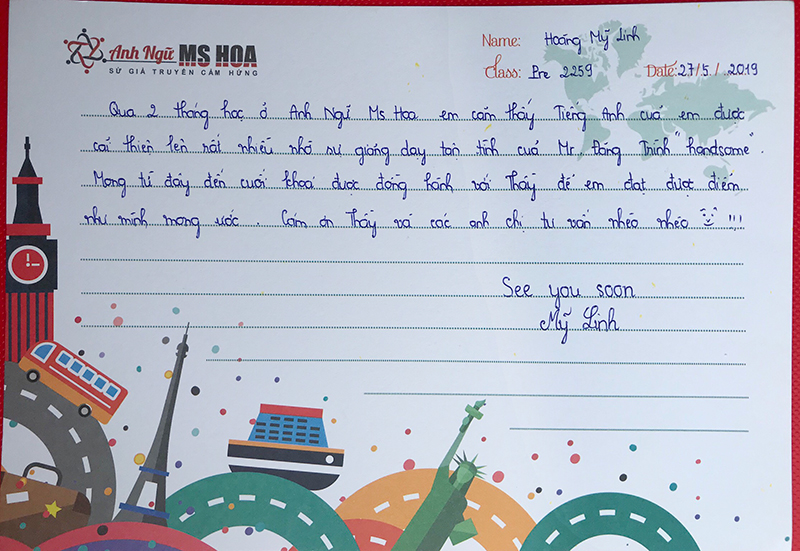 Anh Ngữ MS HOA
SỨ GIẢ TRUYỀN CẢM HỨNG
Name: Hoàng Mỹ Linh
Class: Pre 2259 Date: 27/5/2019
Qua 2 tháng học ở Anh Ngữ Ms Hoa em cảm thấy Tiếng Anh của em được
cải thiện lên rất nhiều nhờ sự giảng dạy tận tình của Mr Đăng Trình "handsome".
Mong từ đây đến cuối khoá được đồng hành với Thầy để em đạt được điểm
như mình mong ước. Cảm ơn Thầy và các anh chị tư vấn nhéo nhéo !!!
See you soon
Mỹ Linh